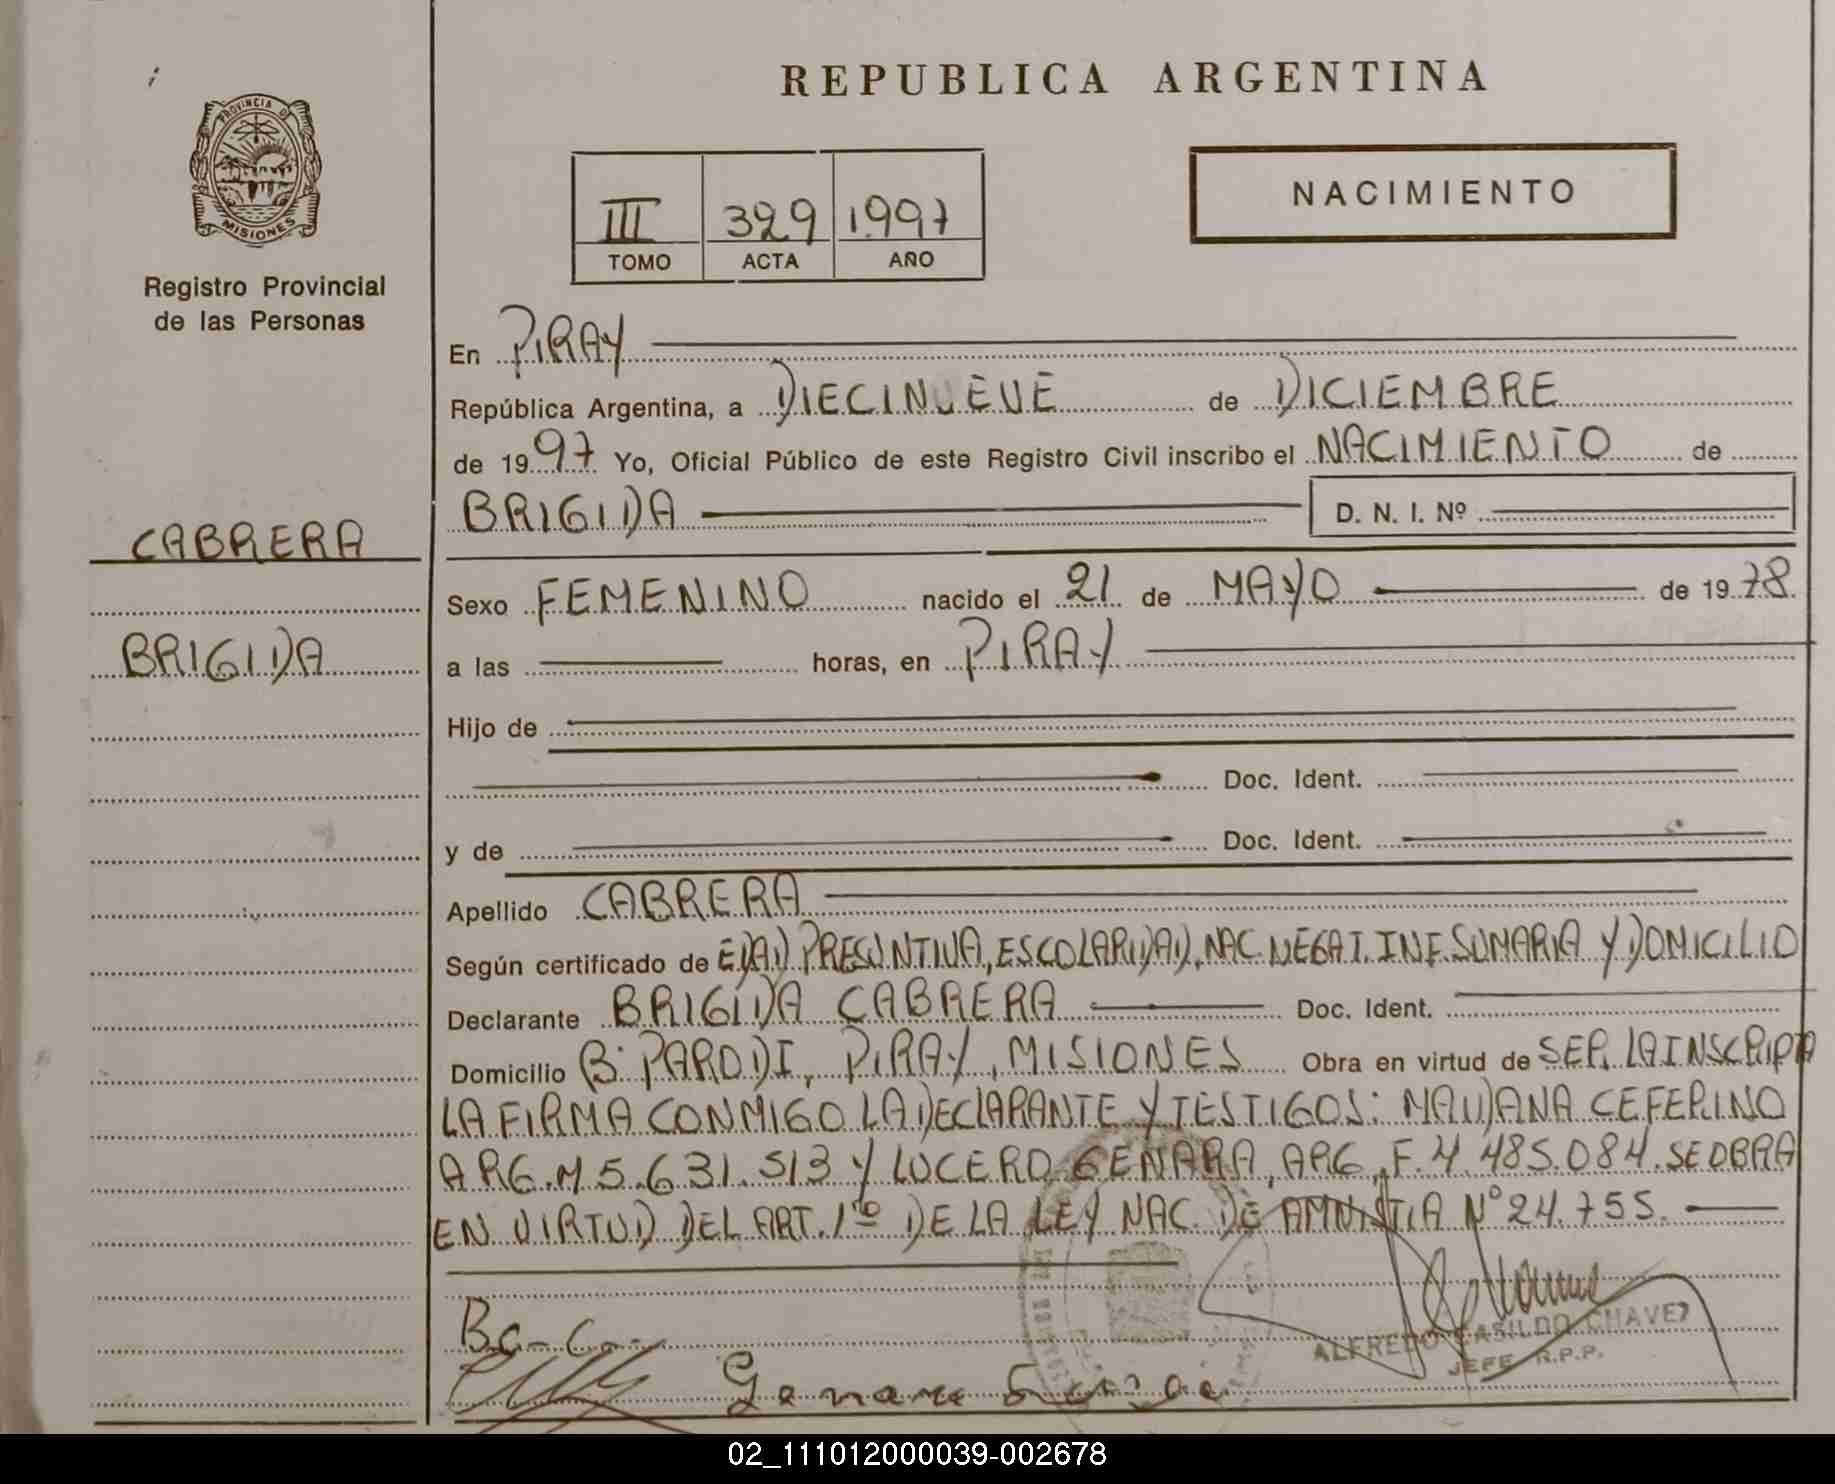 REPUBLICA ARGENTINA
PROVINCIA DE
MISIONES
Registro Provincial
de las Personas
NACIMIENTO
III 329 1.997
TOMO ACTA AÑO
En PIRAY
República Argentina, a DIECINUEVE de DICIEMBRE
de 1997 Yo, Oficial Público de este Registro Civil inscribo el NACIMIENTO de
BRIGIDA D. N. I. Nº
CABRERA
Sexo FEMENINO nacido el 21 de MAYO de 1978
BRIGIDA
a las horas, en PIRAY
Hijo de
Doc. Ident.
y de Doc. Ident.
Apellido CABRERA
Según certificado de EDAD PRESUNTIVA, ESCOLARIDAD, NAC. NEGAT. INF. SUMARIA Y DOMICILIO
Declarante BRIGIDA CABRERA Doc. Ident.
Domicilio Bº PARODI, PIRAY, MISIONES Obra en virtud de SER LA INSCRIPTA
LA FIRMA CONMIGO LA DECLARANTE Y TESTIGOS: MAIDANA CEFERINO
ARG. M 5.631.513 Y LUCERO GENARA, ARG. F. 4.485.084. SE OBRA
EN VIRTUD DEL ART. 1º DE LA LEY NAC. DE AMNISTIA Nº 24.755.
ALFREDO CASILDO CHAVEZ
JEFE R.P.P.
Genara
02_111012000039-002678